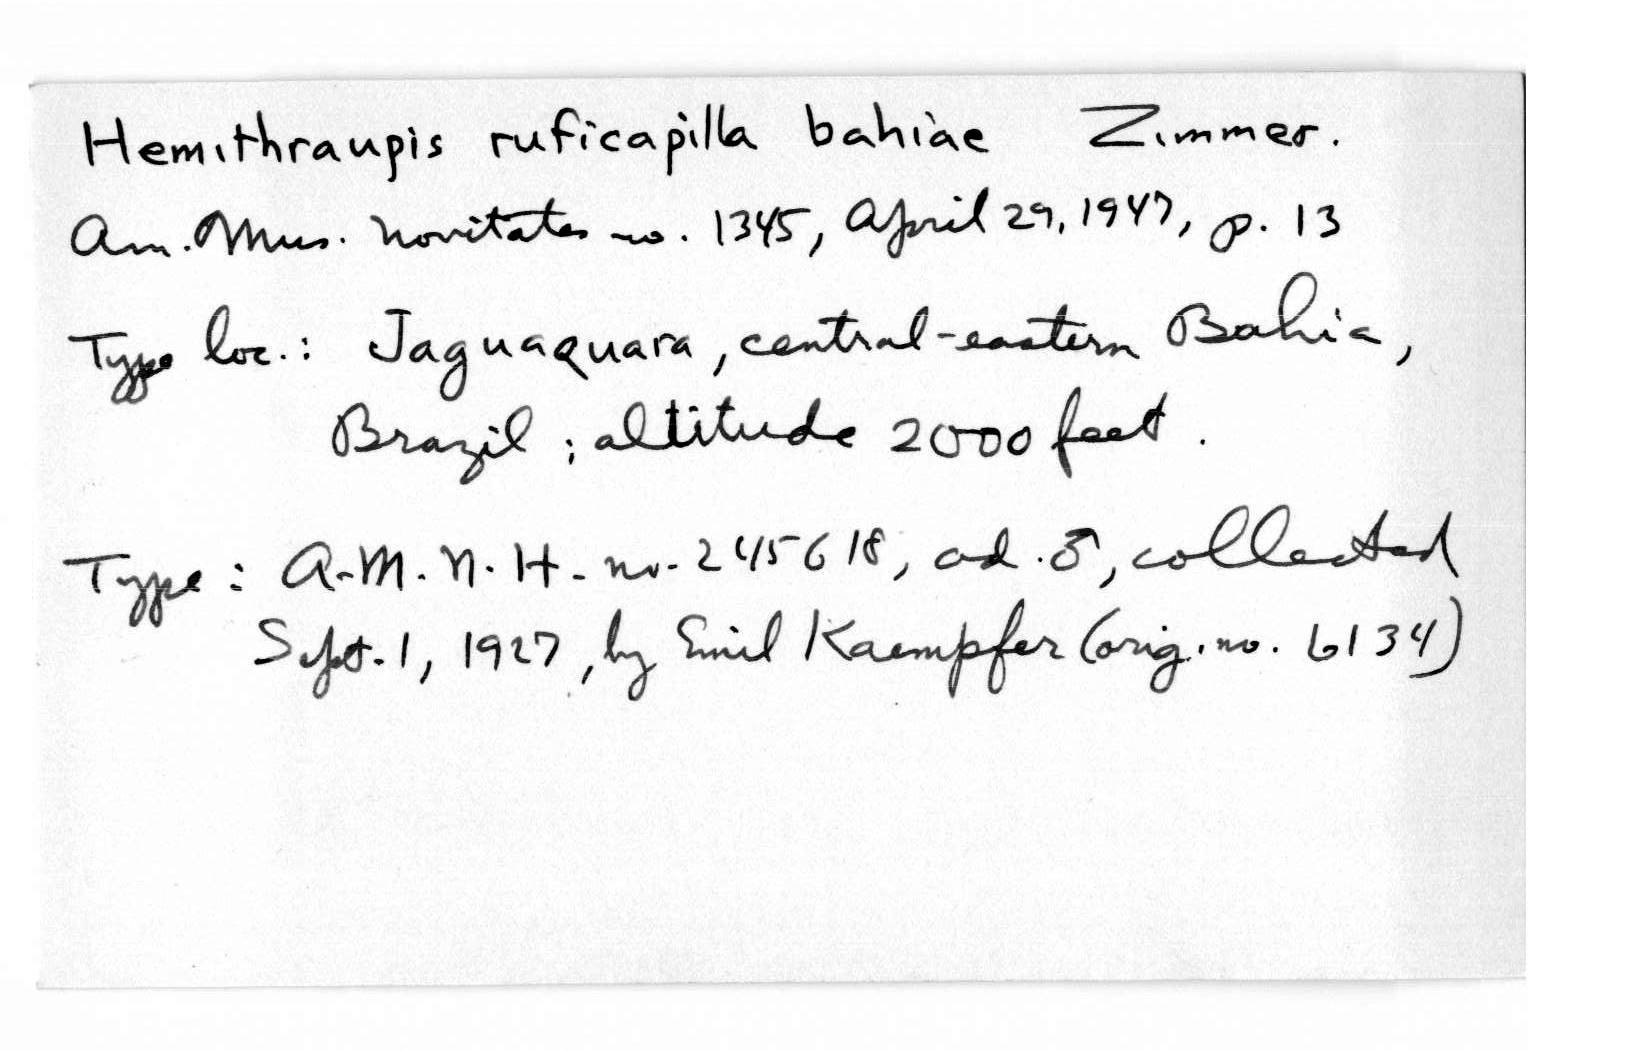 Hemithraupis ruficapilla bahiae Zimmer.
Am. Mus. Novitates no. 1345, April 29, 1947, p. 13
Type loc.: Jaguaquara, central-eastern Bahia,
Brazil; altitude 2000 feet.
Type: A.M.N.H. no. 245618, ad. ♂, collected
Sept. 1, 1927, by Emil Kaempfer (orig. no. 6134)